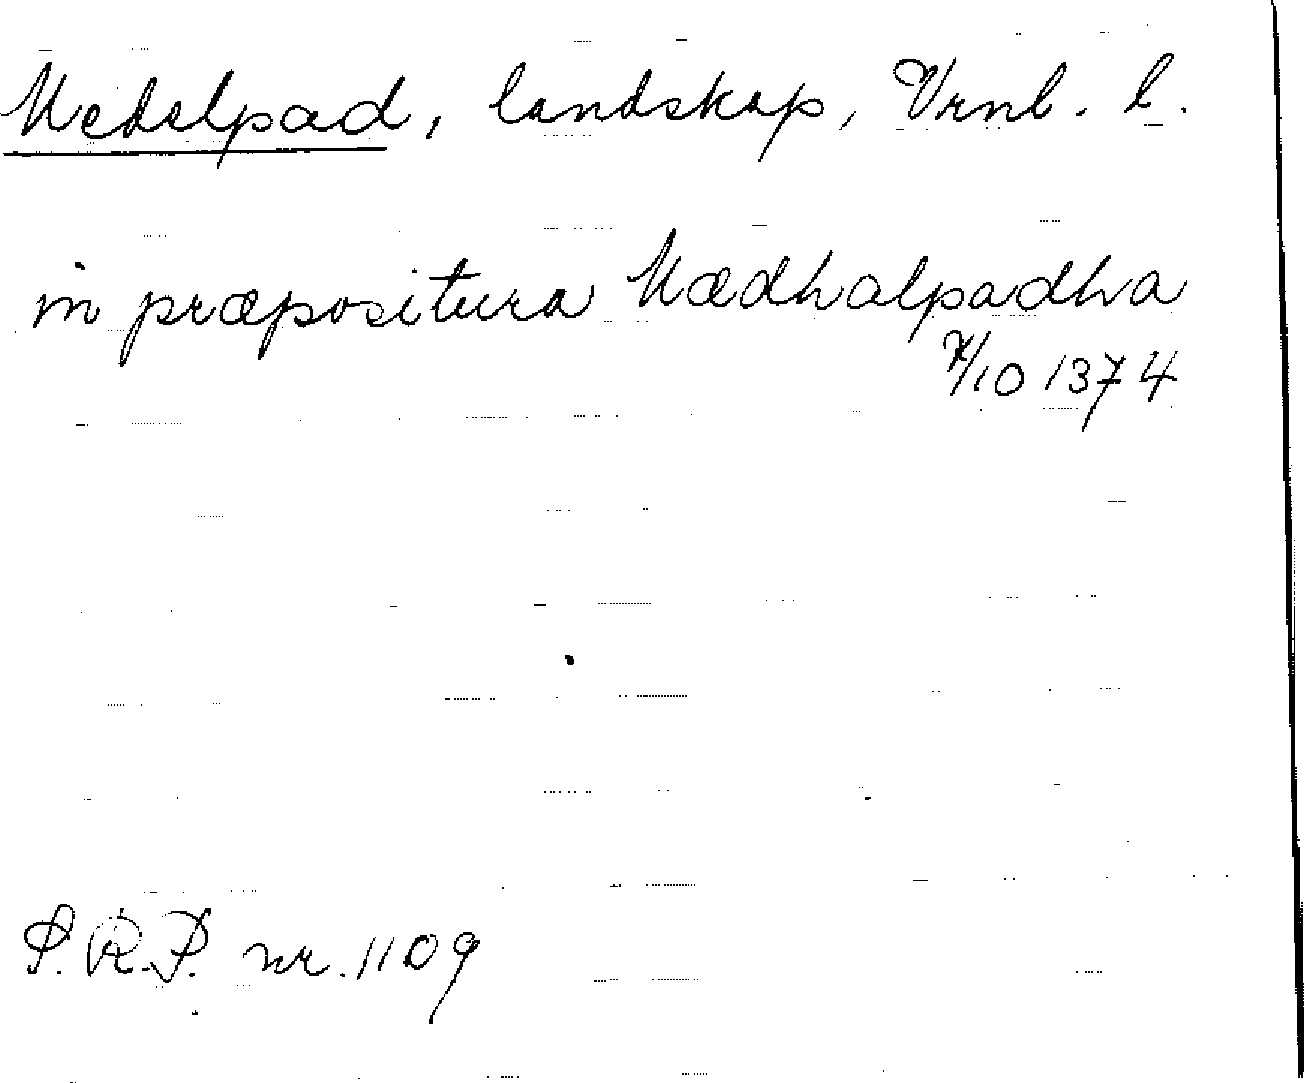 Medelpad, landskap, Vrnl. l.
in præpositura Mædhalpadha
7/10 1374
S.R.P. nr. 1109